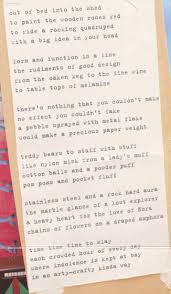 out of bed into the shed
to paint the wooden roses red
to ride a rocking quadruped
with a big idea in your head
form and function in a line
the rudiments of good design
from the oaken keg to the fine wine
to table tops of melamine
there's nothing that you couldn't make
no effect you couldn't fake
a pebble sprayed with metal flake
would make a precious paper weight
teddy bears to stuff with stuff
like nylon mink from a lady's muff
cotton balls and a powder puff
pom poms and pocket fluff
stainless steel and a rock hard aura
the marble glance of a lost explorer
a heavy heart for the love of Flora
chains of flowers on a draped amphora
time time time to slay
each crowded hour of every day
where indolence is kept at bay
in an arty-crafty kinda way